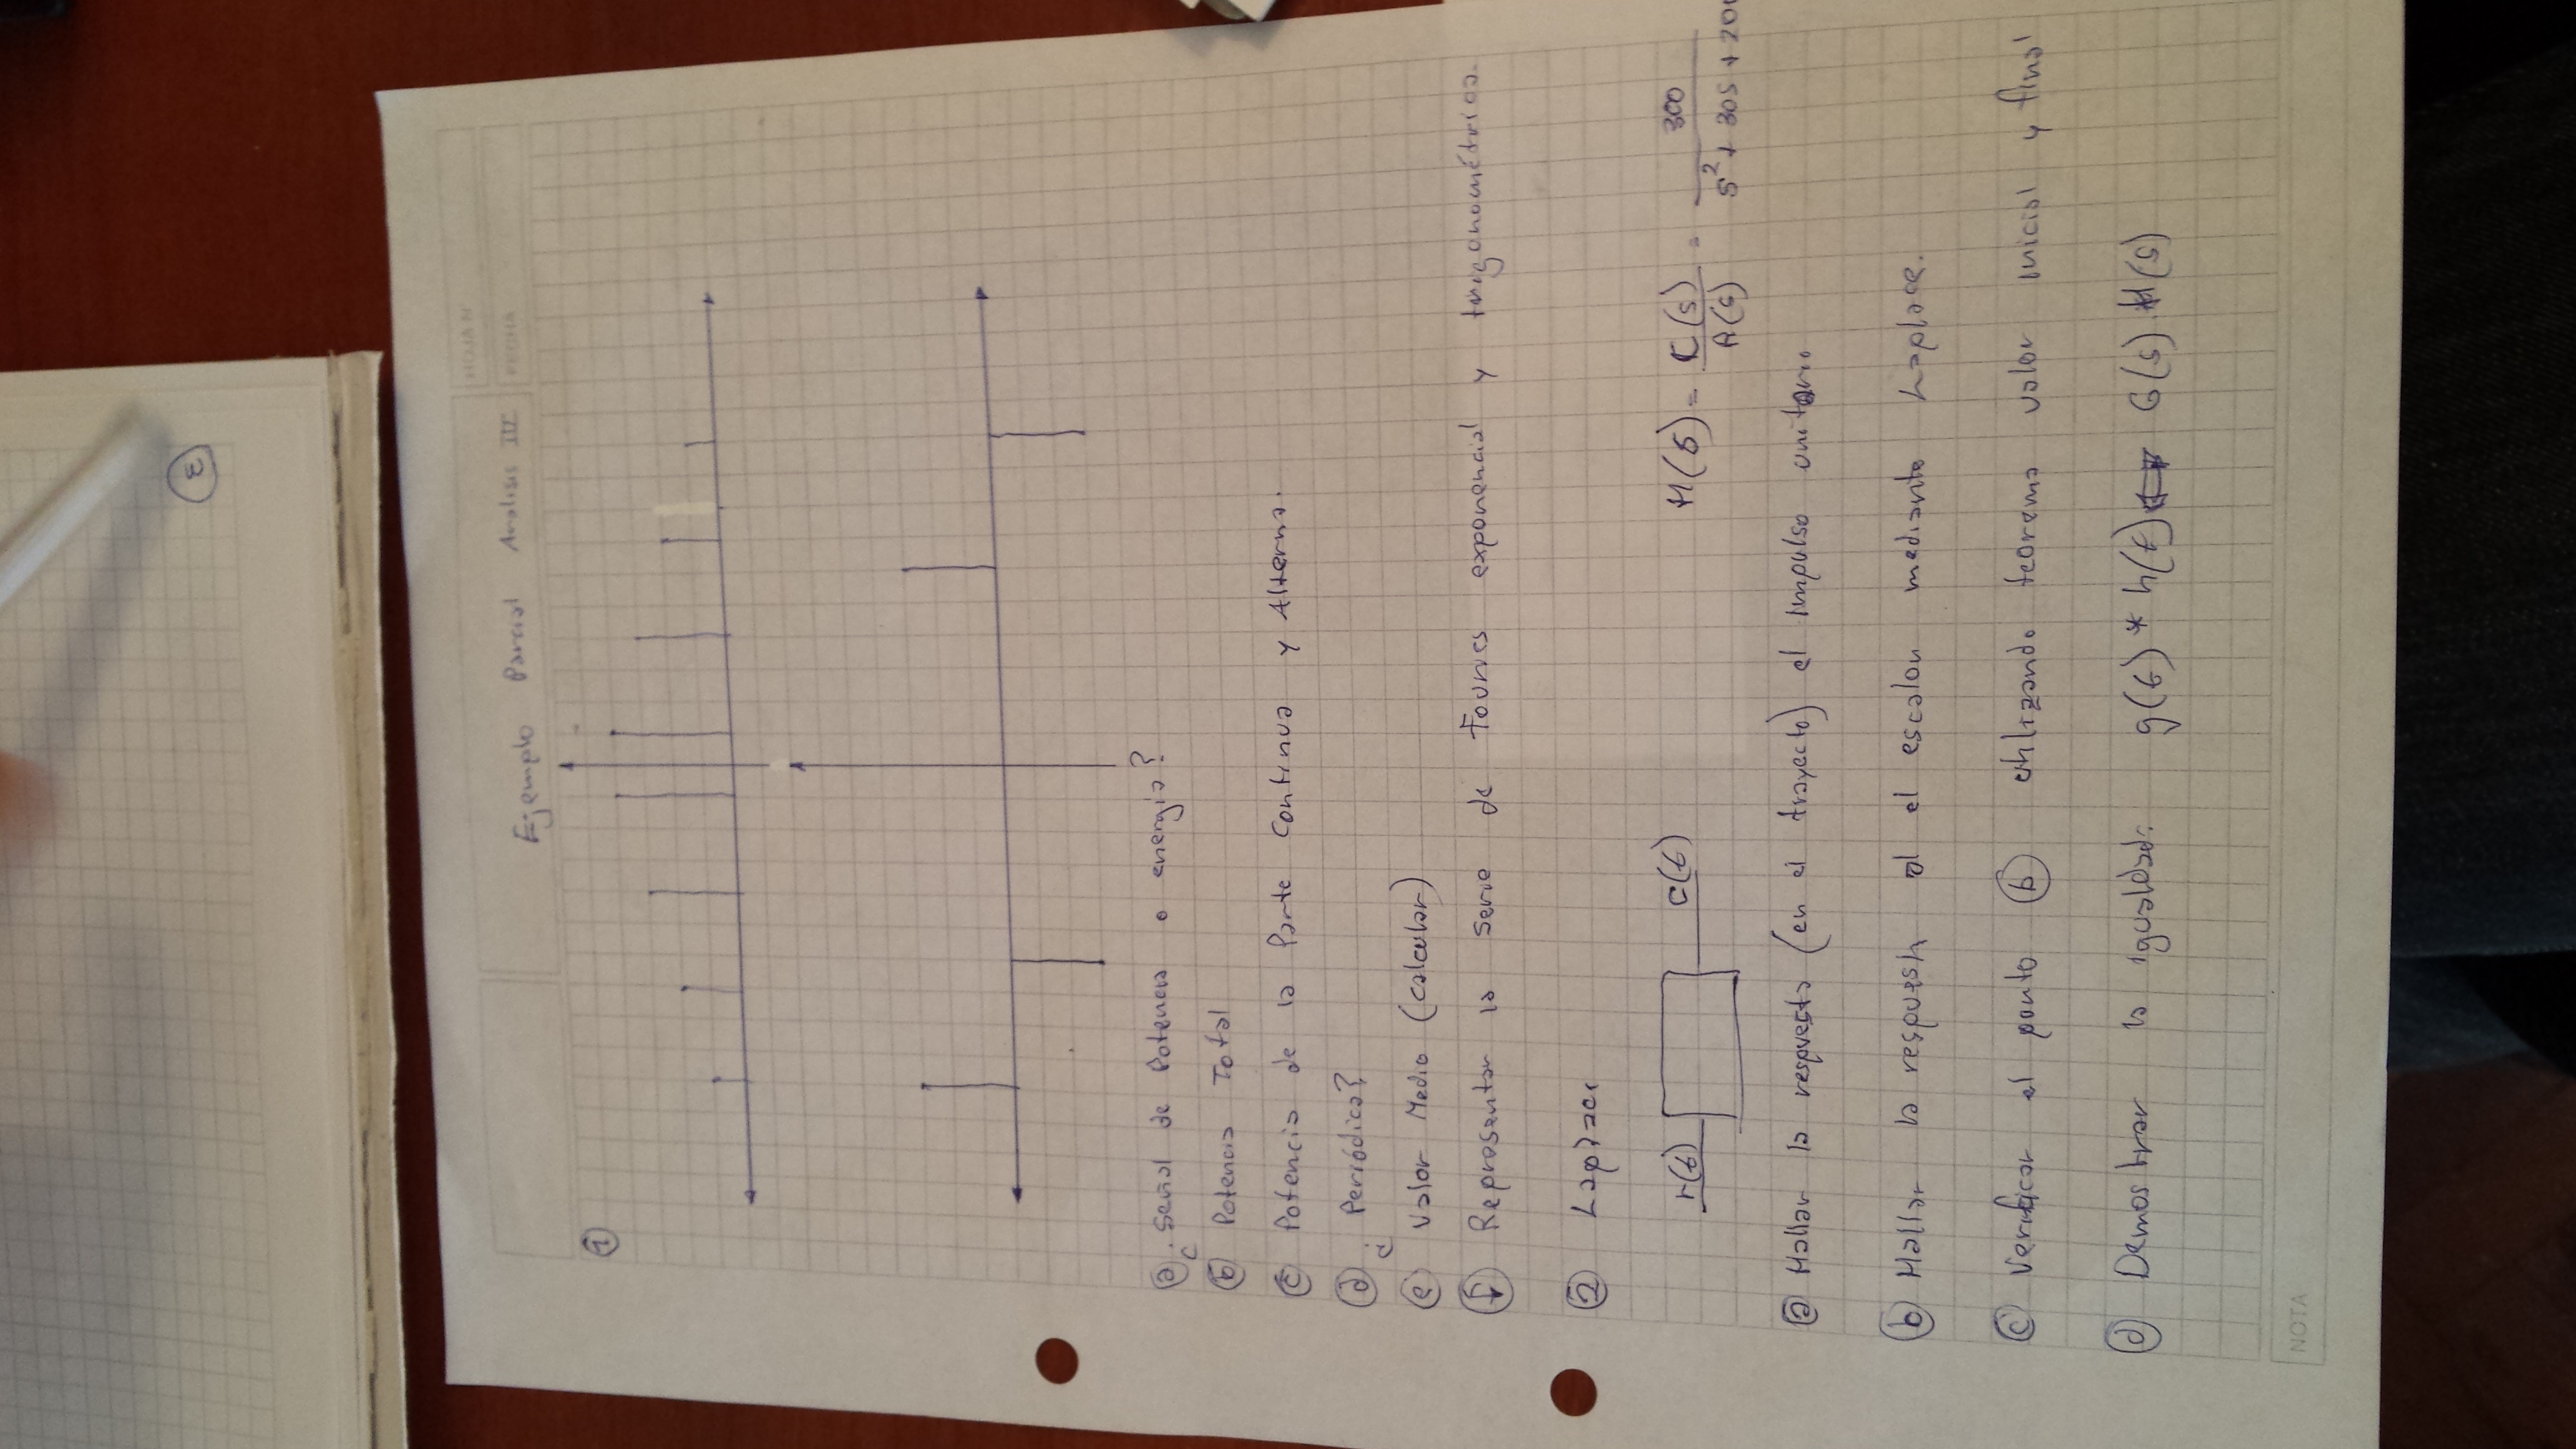 3
HOJA N°
FECHA
Ejemplo Parcial Analisis III
①
ⓐ ¿Señal de Potencia o energia?
ⓑ Potencia Total
ⓒ Potencia de la Parte Continua y Alterna.
ⓓ ¿Periódica?
ⓔ Valor Medio (calcular)
ⓕ Representar la serie de Fourier exponencial y trigonométrica.
② Laplace
r(t) c(t) H(s) = C(s) / R(s) = 300 / s² + 30s + 200
ⓐ Hallar la respuesta (en el trayecto) al impulso unitario
ⓑ Hallar la respuesta al el escalon mediante Laplace.
ⓒ Verificar el punto ⓑ utilizando teorema valor inicial y final
ⓓ Demostrar la igualdad: g(t) * h(t) ⟷ G(s) H(s)
NOTA